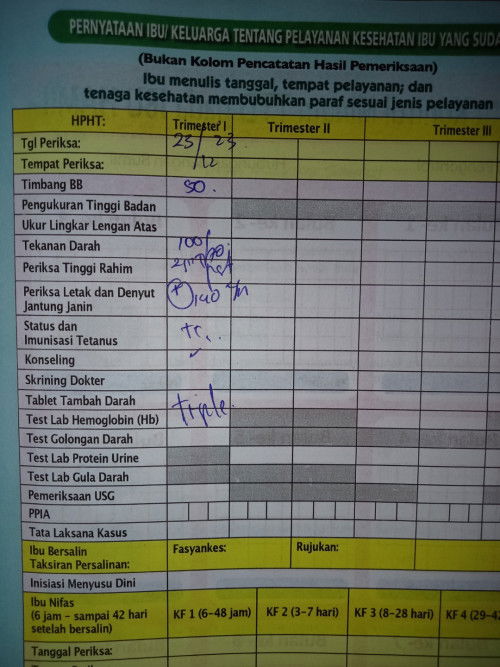 PERNYATAAN IBU/ KELUARGA TENTANG PELAYANAN KESEHATAN IBU YANG SUDA
(Bukan Kolom Pencatatan Hasil Pemeriksaan)
Ibu menulis tanggal, tempat pelayanan; dan
tenaga kesehatan membubuhkan paraf sesuai jenis pelayanan
HPHT: Trimester I Trimester II Trimester III
Tgl Periksa: 23/ 23
Tempat Periksa: 12
Timbang BB 50.
Pengukuran Tinggi Badan
Ukur Lingkar Lengan Atas
Tekanan Darah 100/
Periksa Tinggi Rahim
Periksa Letak dan Denyut
Jantung Janin + 140
Status dan
Imunisasi Tetanus
Konseling ✓
Skrining Dokter
Tablet Tambah Darah
Test Lab Hemoglobin (Hb) triple
Test Golongan Darah
Test Lab Protein Urine
Test Lab Gula Darah
Pemeriksaan USG
PPIA
Tata Laksana Kasus
Ibu Bersalin Fasyankes: Rujukan:
Taksiran Persalinan:
Inisiasi Menyusu Dini
Ibu Nifas
(6 jam - sampai 42 hari KF 1 (6-48 jam) KF 2 (3-7 hari) KF 3 (8-28 hari) KF 4 (29-4
setelah bersalin)
Tanggal Periksa: